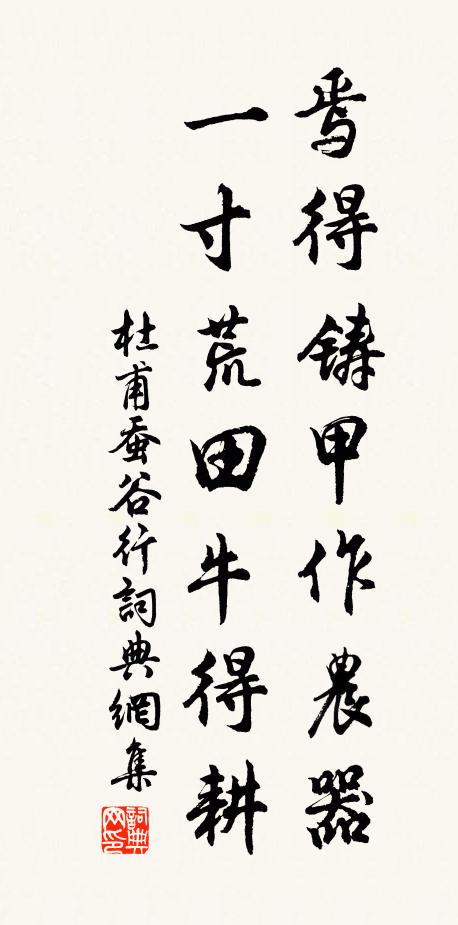 焉得鑄甲作農器
一寸荒田牛得耕
杜甫蚕谷行詞典網集
詞典網印